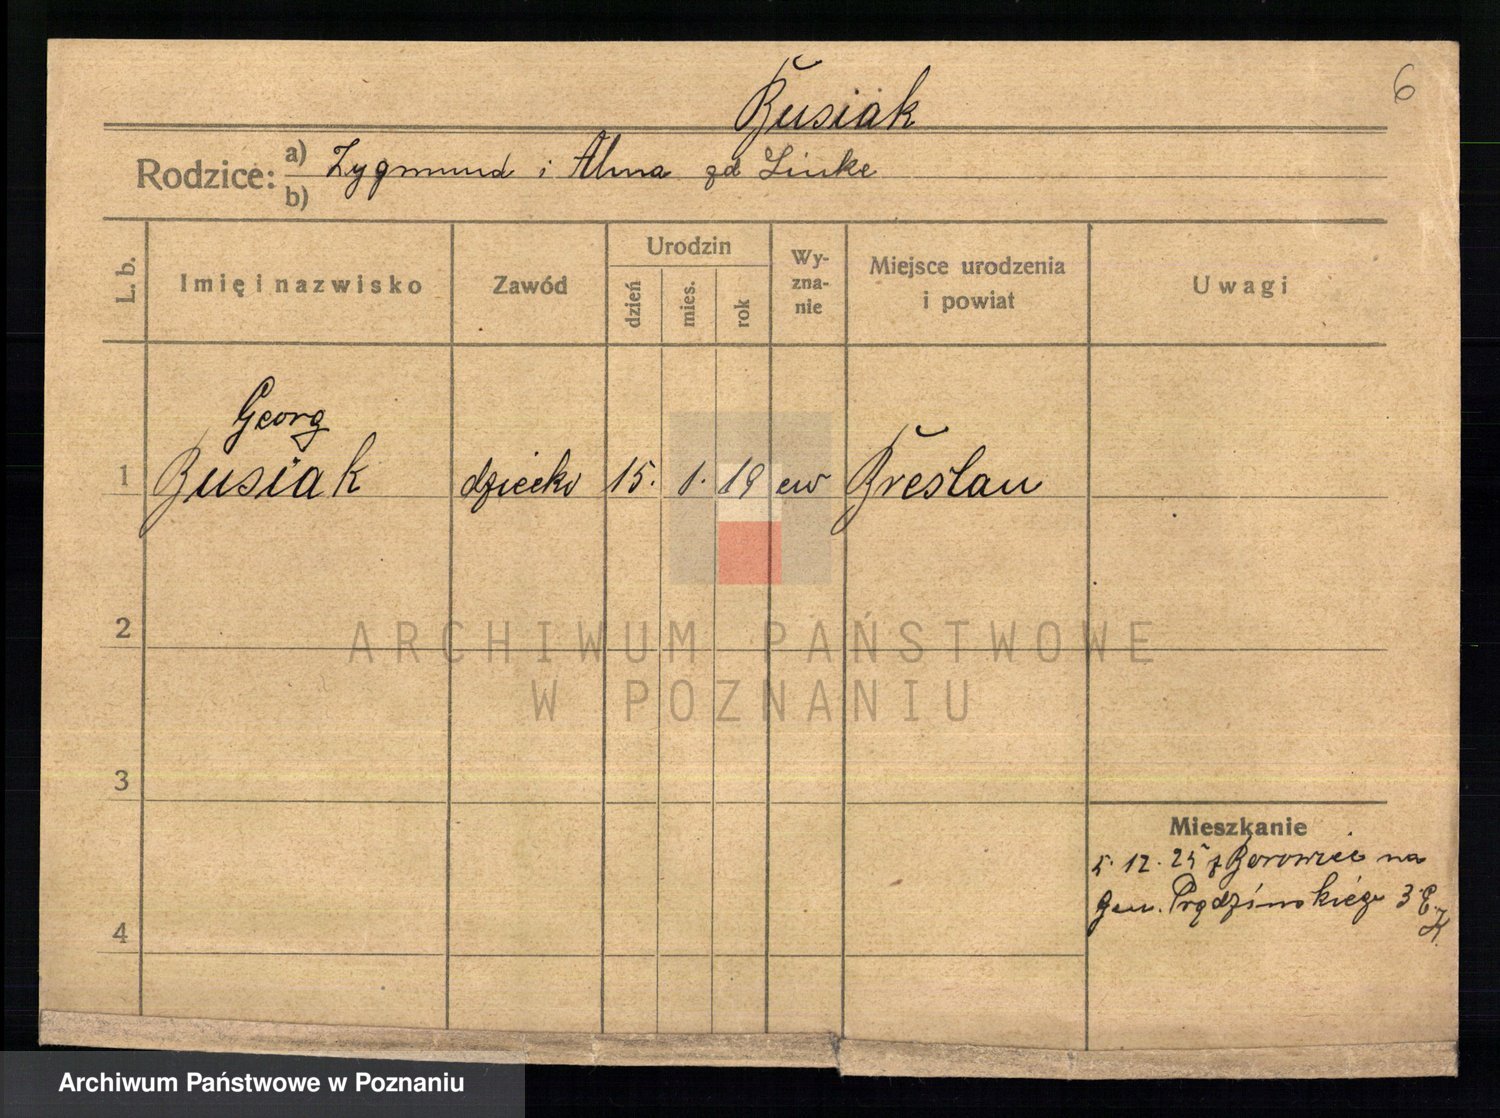 6
Busiak
Rodzice: a) Zygmund i Alma zd Linke
b)
L. b. Imię i nazwisko Zawód Urodzin dzień mies. rok Wy-zna-nie Miejsce urodzenia i powiat Uwagi
Georg
1 Busiak dziecko 15. 1. 19 ew Breslau
2
ARCHIWUM PAŃSTWOWE
W POZNANIU
3
Mieszkanie
5. 12. 25 z Borowiec na
Gen. Prądzińskiego 3
4
Archiwum Państwowe w Poznaniu